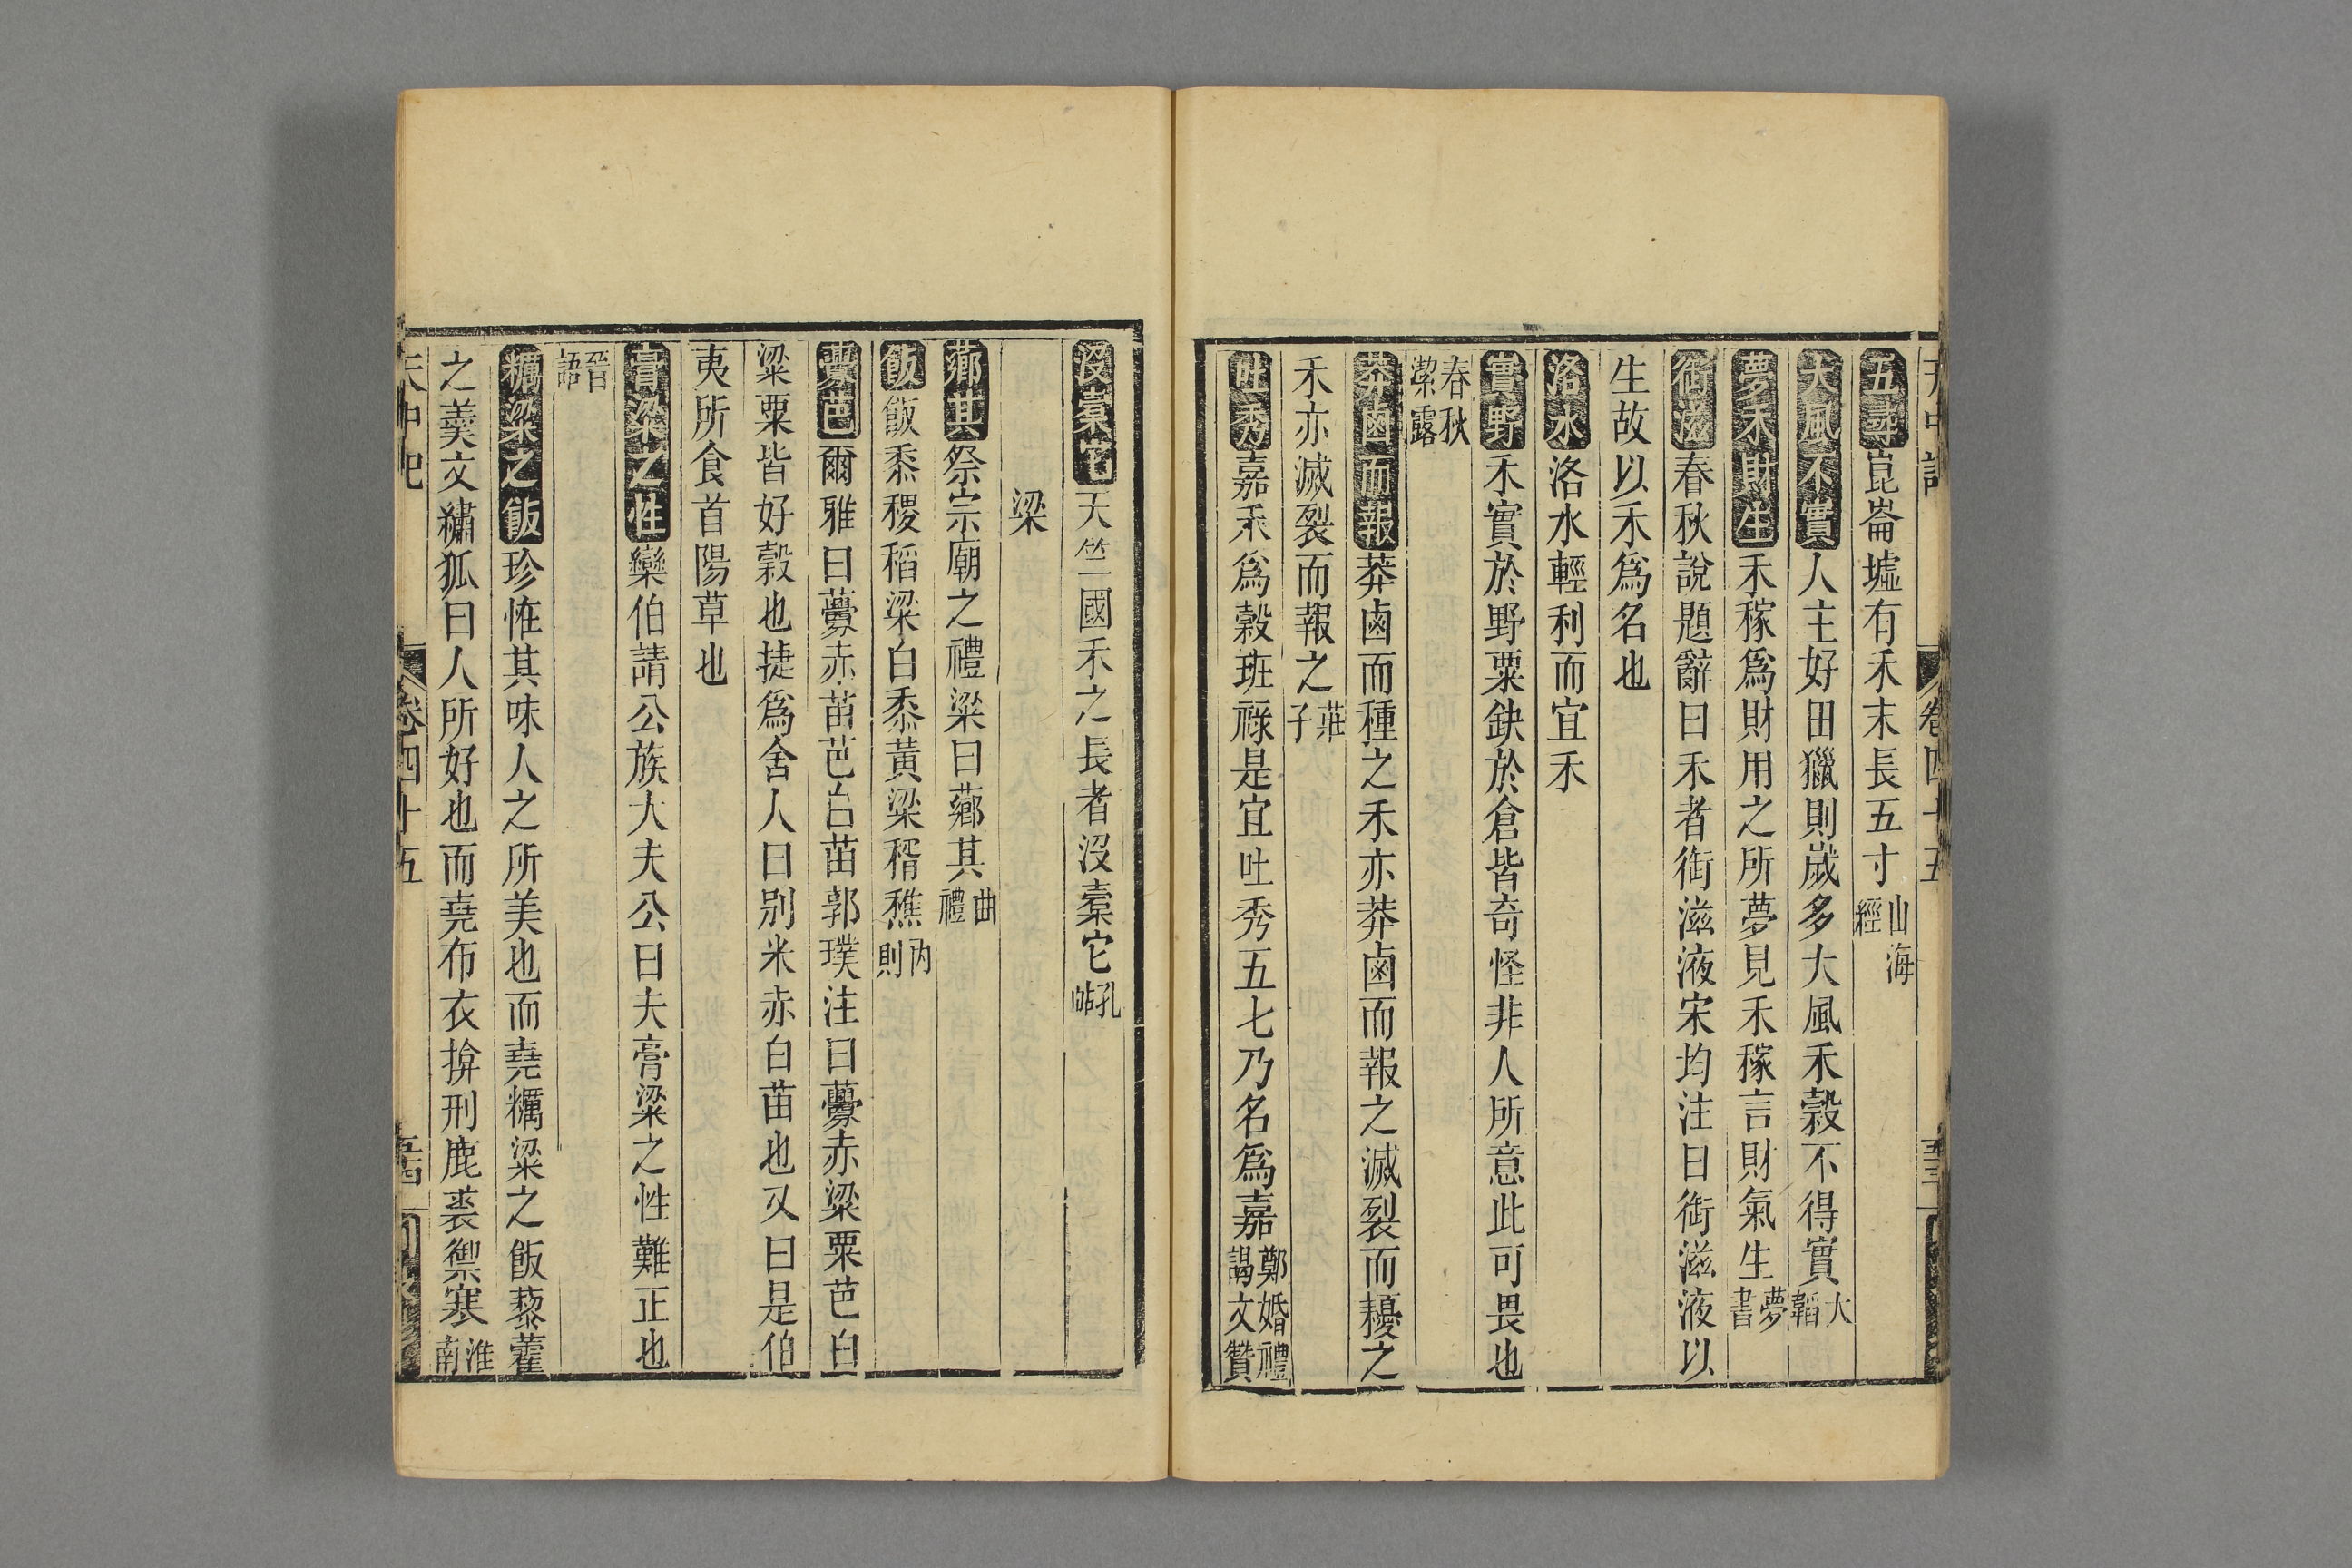 五尋崑崙墟有禾末長五寸山海經
大風不實人主好田獵則歲多大風禾穀不得實大韜
夢禾財生禾稼爲財用之所夢見禾稼言財氣生夢書
銜滋春秋說題辭曰禾者銜滋液宋均注曰銜滋液以
生故以禾爲名也
洛水洛水輕利而宜禾
實野禾實於野粟鈌於倉皆奇怪非人所意此可畏也
春秋潔露
莽鹵而報莽鹵而種之禾亦莽鹵而報之滅裂而耰之
禾亦滅裂而報之莊子
吐秀嘉禾爲穀班祿是宜吐秀五七乃名爲嘉鄭婚禮謁文贊
沒橐它天竺國禾之長者沒橐它孔帖
梁
薌萁祭宗廟之禮粱曰薌萁曲禮
飯飯黍稷稻粱白黍黃粱稰穛內則
虋芑爾雅曰虋赤苗芑白苗郭璞注曰虋赤粱粟芑白
粱粟皆好穀也捷爲舍人曰別米赤白苗也又曰是伯
夷所食首陽草也
膏粱之性欒伯請公族大夫公曰夫膏粱之性難正也
晉語
糲粱之飯珍恠其味人之所美也而堯糲粱之飯藜藿
之羹文繡狐曰人所好也而堯布衣揜刑鹿裘禦寒淮南
天中記 卷四十五